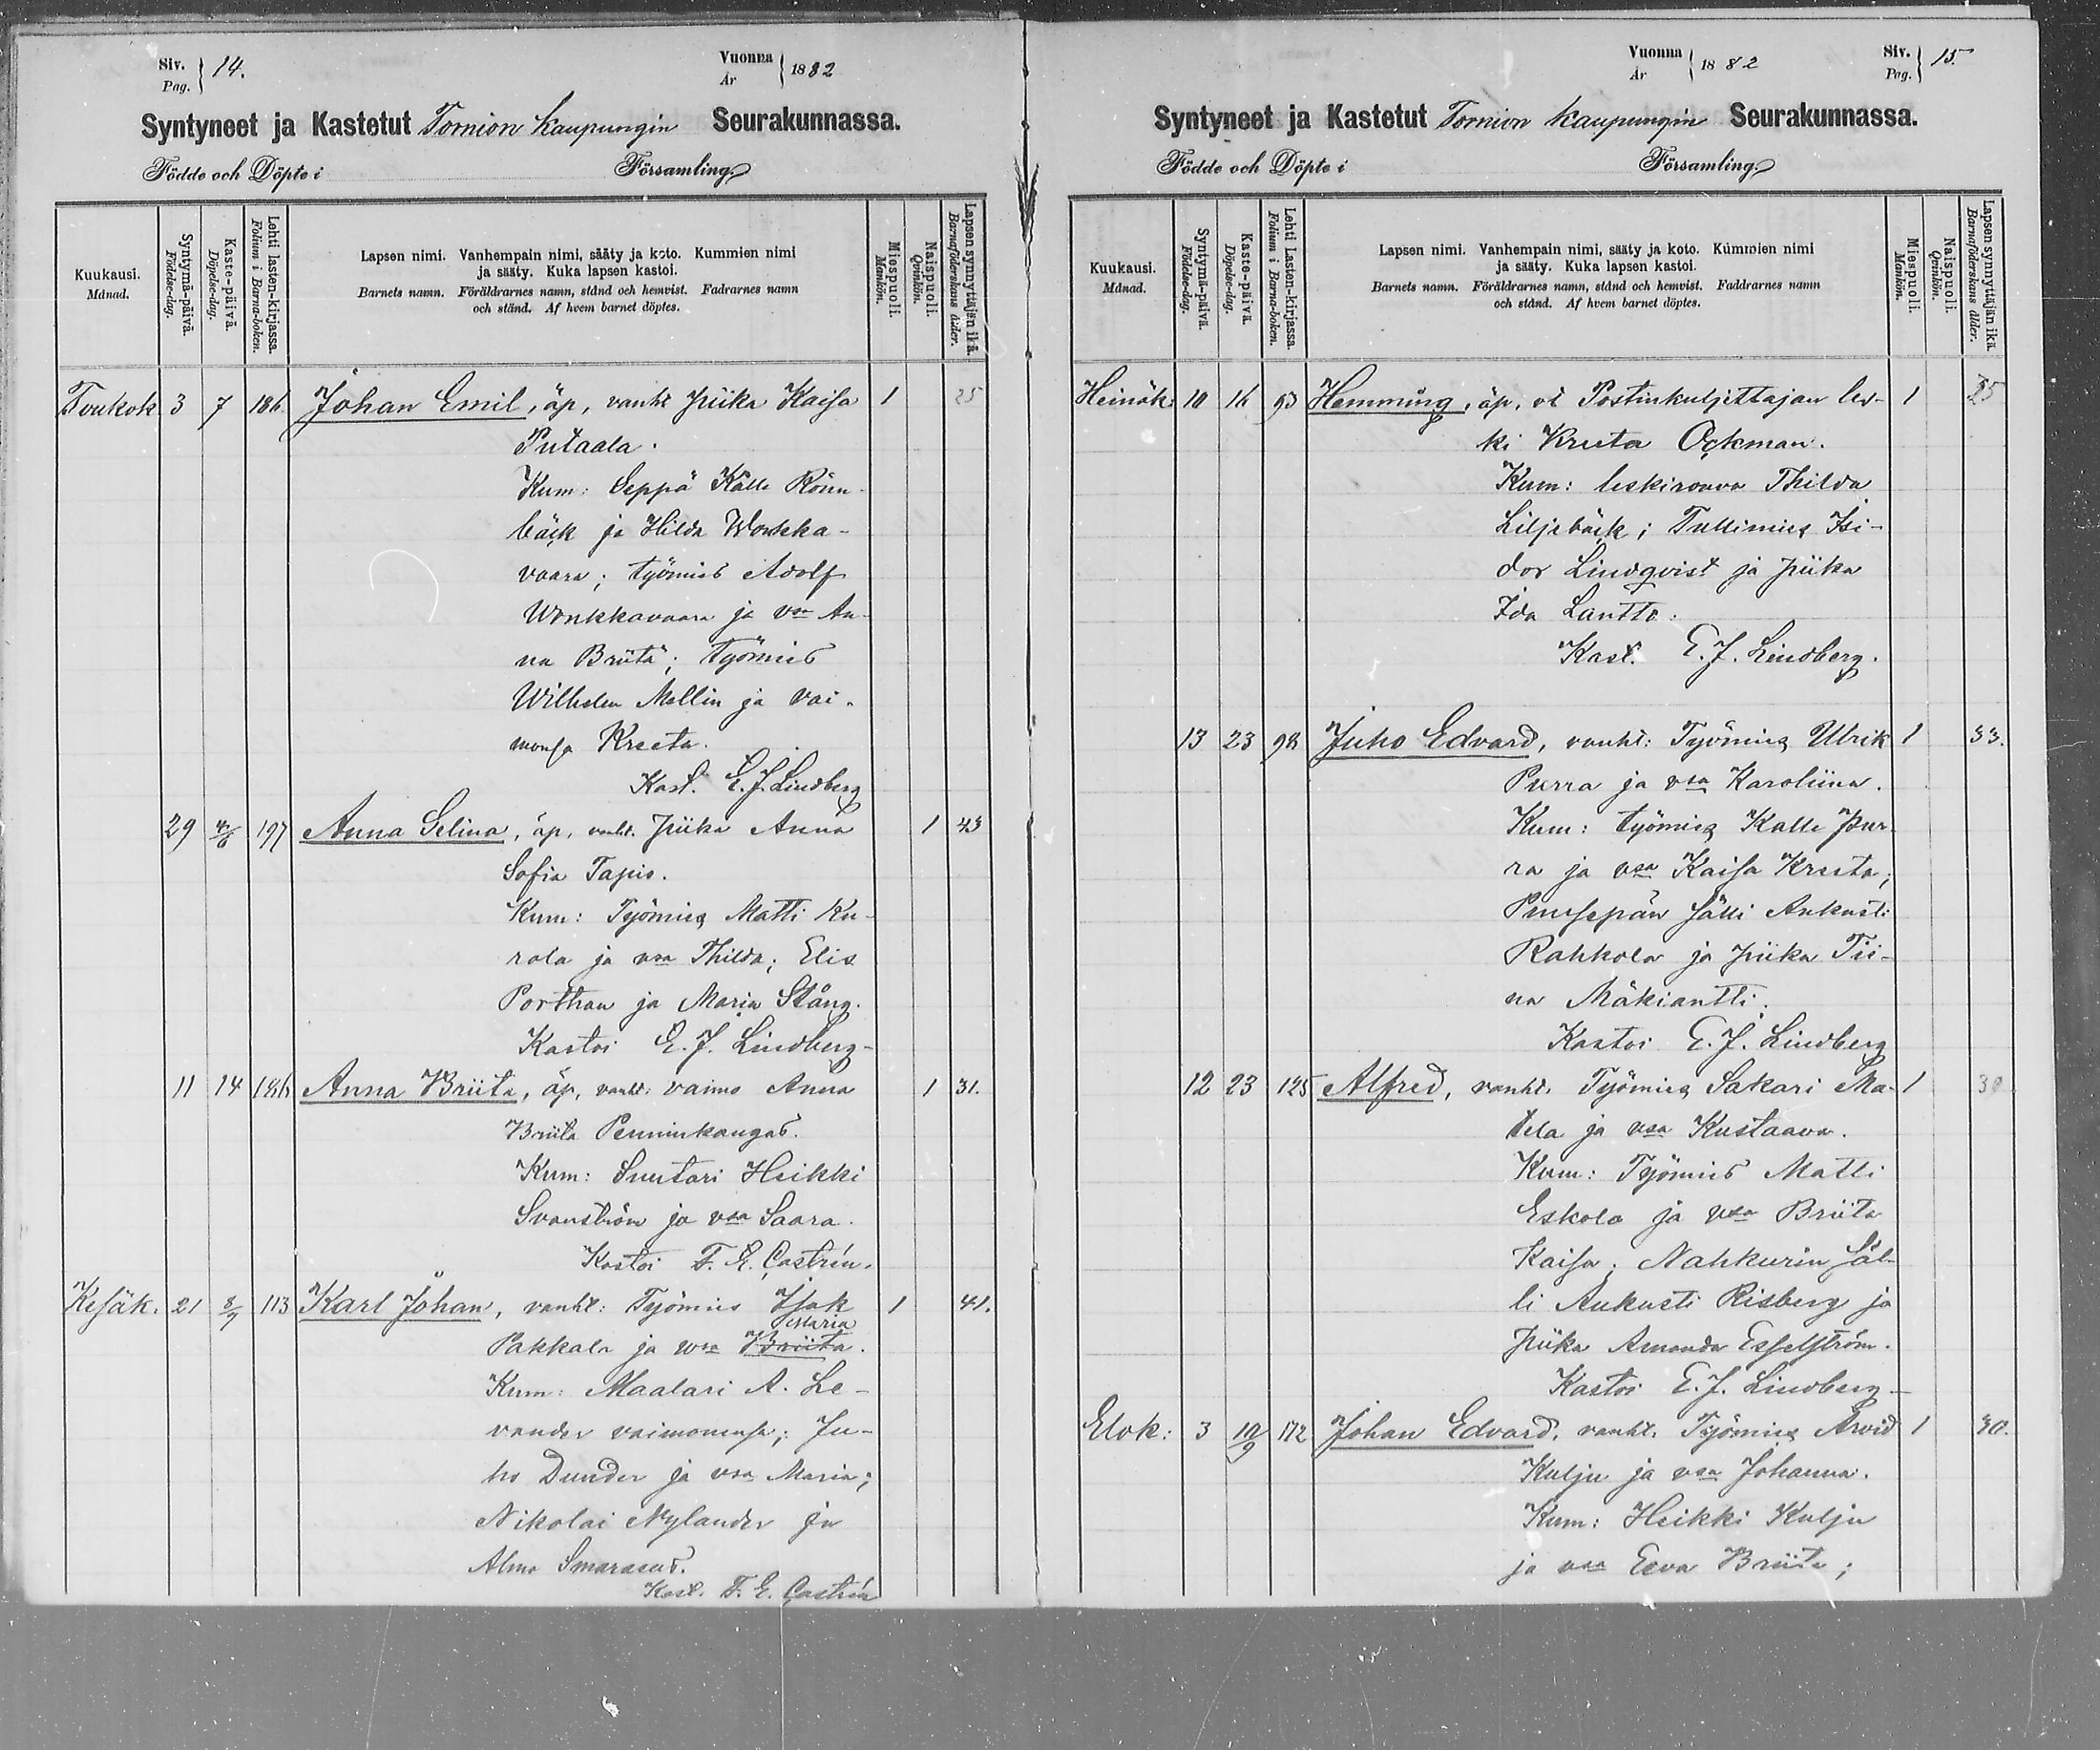 Siv. Pag. 14.
Vuonna År 1882
Syntyneet ja Kastetut Tornion kaupungin Seurakunnassa.
Födde och Döpte i Församling
Kuukausi. Månad.
Syntymä-päivä. Födelse-dag.
Kaste-päivä. Döpelse-dag.
Lehti lasten-kirjassa. Folium i Barna-boken.
Lapsen nimi. Vanhempain nimi, sääty ja koto. Kummien nimi
ja sääty. Kuka lapsen kastoi.
Barnets namn. Föräldrarnes namn, stånd och hemvist. Fadrarnes namn
och stånd. Af hvem barnet döptes.
Miespuoli. Mankön.
Naispuoli. Qvinkön.
Lapsen synnyttäjän ikä. Barnaföderskans ålder.
Toukok 3 7 186 Johan Emil, äp, vanht piika Kaisa 1 25
Putaala.
Kum: Seppä Kalle Rönn-
bäck ja Hilda Wonkka-
vaara; työmies Adolf
Wonkkavaara ja vsa An-
na Briita; työmies
Wilhelm Mellin ja vai-
monsa Kreeta.
Kast. E. J. Lindberg
29 4/6 197 Anna Selina, äp, vanht. piika Anna 1 43
Sofia Tapio.
Kum: Työmies Matti Ku-
rola ja vsa Thilda; Elis
Porthan ja Maria Stång.
Kastoi E. J. Lindberg-
11 14 186 Anna Briita, äp, vanht: vaimo Anna 1 31.
Briita Penninkangas.
Kum: Suutari Heikki
Svanström ja vsa Saara.
Kastoi F. E. Castrén.
Kesäk. 21 8/7 113 Karl Johan, vanht: Työmies Isak 1 41.
Maria
Pakkala ja vsa Briita.
Kum: Maalari A. Le-
vander vaimonensa; Ju-
ho Dunder ja vsa Maria;
Nikolai Nylander ja
Alma Smarasus.
Kast. F. E. Castrén
Vuonna År 1882
Siv. Pag. 15.
Syntyneet ja Kastetut Tornion kaupungin Seurakunnassa.
Födde och Döpte i Församling
Kuukausi. Månad.
Syntymä-päivä. Födelse-dag.
Kaste-päivä. Döpelse-dag.
Lehti Lasten-kirjassa. Folium i Barna-boken.
Lapsen nimi. Vanhempain nimi, sääty ja koto. Kummien nimi
ja sääty. Kuka lapsen kastoi.
Barnets namn. Föräldrarnes namn, stånd och hemvist. Faddrarnes namn
och stånd. Af hvem barnet döptes.
Miespuoli. Mankön.
Naispuoli. Qvinkön.
Lapsen synnyttäjän ikä. Barnaföderskans ålder.
Heinäk: 10 16 93 Hemming, äp, Postinkuljettajan les- 1 35
ki Kreeta Ockman.
Kum: leskirouva Thilda
Liljebäck; Tullimies Isi-
dor Lindqvist ja piika
Ida Lantto.
Kast. E. J. Lindberg.
13 23 98 Juho Edvard, vanht: Työmies Ulrik 1 33.
Purra ja vsa Karoliina.
Kum: työmies Kalle Pur-
ra ja vsa Kaisa Kreeta;
Puusepän sälli Aukusti
Rahkola ja piika Tii-
na Mäkiantti.
Kastoi E. J. Lindberg
12 23 125 Alfred, vanht. Työmies Sakari Ma- 1 30
tela ja vsa Kustaava.
Kum: Työmies Matti
Eskola ja vsa Briita
Kaisa; Nahkurin säl-
li Aukusti Risberg ja
piika Amanda Esselström.
Kastoi E. J. Lindberg-
Elok: 3 10/9 172 Johan Edvard, vanht. Työmies Arvid 1 30.
Kulju ja vsa Johanna.
Kum: Heikki Kulju
ja vsa Eeva Briita;